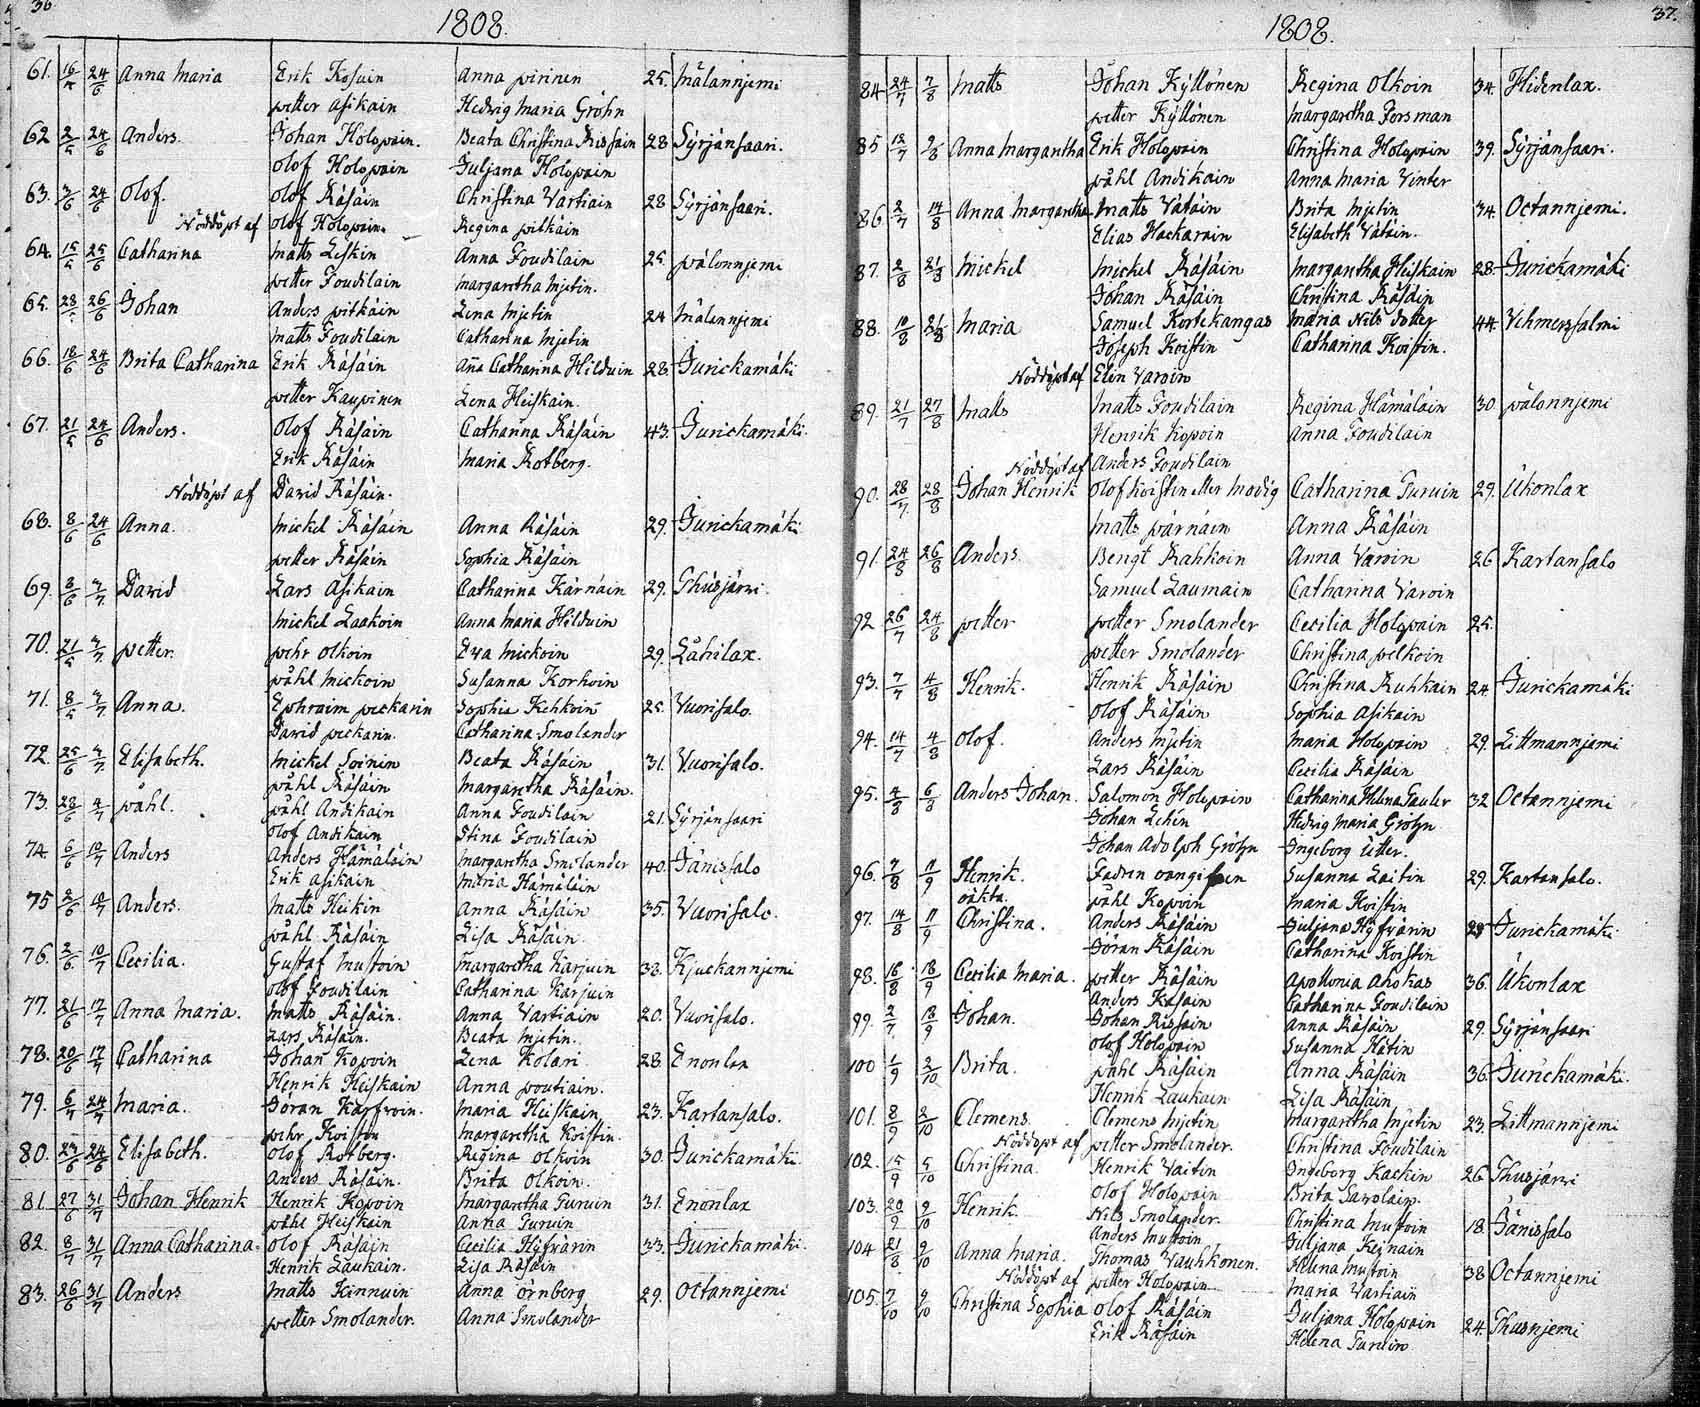 36
1808.
61. 16/4 24/6 Anna Maria Erik Kosuin Anna pirinen 25. Målannjemi
petter Asikain Hedvig Maria Gröhn
62 2/5 24/6 Anders. Johan Holopain. Beata Christina Rissain 28 Sÿrjänsaari.
Olof Holopain Juljana Holopain
63. 3/6 24/6 Olof. Olof Räsäin Christina Vartiain 28 Sÿrjänsaari.
Nöddöpt af Olof Holopain. Regina pitkäin
64. 15/5 25/6 Catharina Matts Leskin Anna Foudilain 25. pålonnjemi
petter Foudilain Margaretha Mjetin.
65. 28/5 26/6 Johan Anders pitkäin Lena Mjetin 24 Målannjemi
Matts Foudilain Catharina Mjetin
66. 18/6 24/6 Brita Catharina Erik Räsäin Aña Catharina Hilduin 28. Jurickamäki
petter Kaupinen Lena Heiskain.
67. 21/5 24/6 Anders. Olof Räsäin Catharina Räsäin 43. Jurickamäki.
Erik Räsäin Maria Rotberg.
Nöddöpt af David Räsäin.
68. 8/6 24/6 Anna. Mickel Räsäin Anna Räsäin 29. Jurickamäki
petter Räsäin Sophia Räsäin
69. 8/6 3/7 David Lars Asikain Catharina Kärnäin 29. Thusjärvi.
Mickel Laakoin Anna Maria Hilduin
70. 21/5 3/7 petter. pehr Olkoin Eva Mickoin 29. Låtrilax.
påhl Mickoin Susanna Korhoin
71. 8/5 3/7 Anna. Ephraim peckarin Sophia Kehkoin 25. Vuorisalo.
David peckarin. Catharina Smolander
72. 25/6 3/7 Elisabeth. Mickel Soinin Beata Räsäin 31. Vuorisalo.
påhl Räsäin Margaretha Räsäin.
73. 28/6 4/7 påhl. påhl Andikain Anna Foudilain 21. Sÿrjänsaari
Olof Andikain Stina Foudilain
74 6/6 10/7 Anders Anders Hämäläin Margaretha Smolander 40. Jänissalo
Erik Asikain Maria Hämäläin
75 2/6 Anders. Matts Heikin Anna Räsäin 35. Vuorisalo.
påhl Räsäin Lisa Räsäin.
76. 2/6. 10/7 Cecilia. Gustaf Mustoin Margaretha Karjuin 38. Kjuckannjemi
Olof Foudilain Catharina Karjuin
77. 21/6 17/7 Anna Maria. Matts Räsäin. Anna Vartiain 20. Vuorisalo.
Lars Räsäin. Beata Mjetin.
78. 20/6 17/7 Catharina Johan Kopoin Lena Kolari 28. Enonlax
Henrik Heiskain Anna poutiain.
79. 6/7 24/7 Maria. Jöran Karfvoin. Maria Heiskain 23. Kartansalo.
pehr Koistin Margaretha Koistin.
80. 23/6 24/6 Elisabeth. Olof Rotberg. Regina Olkoin 30. Jurickamäki.
Anders Räsäin. Brita Olkoin.
81. 27/6 31/7 Johan Henrik Henrik Kopoin Margaretha Turuin 31. Enonlax
påhl Heiskain Anna Turuin
82. 8/7 31/7 Anna Catharina. Olof Räsäin Cecilia Hÿfvärin 33. Jurickamäki.
Henrik Laukain. Lisa Räsäin
83. 26/6 31/7 Anders Matts Kinnuin Anna Örnberg 29. Octannjemi
petter Smolander. Anna Smolander
37.
1808.
84 24/7 7/8 Matts Johan Kÿllönen Regina Olkoin 34. Hidenlax.
petter Kÿllönen Margaretha Forsman
85 12/7 Anna Margaretha Erik Holopain Christina Holopain 39. Sÿrjänsaari.
påhl Andikain Anna Maria Vinter
86. 2/7 14/8 Anna Margaretha Matts Vätäin Brita Mjetin 34. Octannjemi.
Elias Hackarain Elisabeth Vätäin.
87. 2/8 21/8 Mickel Mickel Räsäin Margaretha Heiskain 28. Jurickamäki
Johan Räsäin Christina Räsäin
88. 10/8 21/8 Maria Samuel Kortekangas Maria Nils dotter 44. Vehmersalmi
Joseph Koistin Catharina Koistin.
Nöddöpt af Elin Varoin
89. 21/7 27/8 Matts Matts Foudilain Regina Hämäläin 30. pålonnjemi
Henrik Kopoin Anna Foudilain
Nöddöpt af Anders Foudilain
90. 28/7 28/8 Johan Henrik Olof Koistin eller Modig Catharina Turuin 29. Ukonlax
Matts pärnäin Anna Räsäin
91. 24/8 26/8 Anders. Bengt Rahkoin Anna Varoin 26 Kartansalo
Samuel Laumain Catharina Varoin
92 26/7 24/8 petter petter Smolander Cecilia Holopain 25.
petter Smolander Christina pelkoin
93. 7/7 4/8 Henrik. Henrik Räsäin Christina Ruhkain 24. Jurickamäki
Olof Räsäin Sophia Asikain
94. 14/7 4/8 Olof. Anders Mjetin Maria Holopain 29. Littmannjemi
Lars Räsäin Cecilia Räsäin
95. 4/8 6/8 Anders Johan. Salomon Holopain Catharina Helena Tauler 32 Octannjemi
Johan Lehin Hedvig Maria Gröhn
Johan Adolph Gröhn Ingeborg Utter.
96. 7/8 11/9 Henrik. Fadren oangifven Susanna Laitin 29. Kartansalo.
oäkta. påhl Kopoin Maria Koistin
97. 14/8 11/9 Christina. Anders Räsäin Juljana Hÿfvärin 29 Jurickamäki.
Jöran Räsäin Catharina Koistin
98. 16/8 18/9 Cecilia Maria. petter Räsäin Apollonia Ahokas 36. Ukonlax
Anders Räsäin Catharina Foudilain
99. 2/7 18/9 Johan. Johan Rissain Anna Räsäin 29. Sÿrjänsaari
Olof Holopain Susanna Hätin
100 1/9 2/10 Brita. påhl Räsäin Anna Räsäin 36. Jurickamäki.
Henrik Laukain Lisa Räsäin
101. 8/9 2/10 Clemens. Clemens Mjetin Margaretha Mjetin 23. Littmannjemi
Nöddopt af petter Smolander. Christina Foudilain
102. 15/9 5/10 Christina. Henrik Vaitin Ingeborg Kackin 26 Thusjärvi
Olof Holopain Brita Savolain.
103. 20/9 9/10 Henrik. Nils Smolander. Christina Mustoin 18. Jänissalo
Anders Mustoin Juljana Keinain
104 21/8 9/10 Anna Maria. Thomas Vauhkonen. Helena Mustoin 38 Octannjemi
Nöddöpt af petter Holopain Maria Vartiain
105. 7/10 9/10 Christina Sophia Olof Räsäin Juljana Holopain 24. Thusnjemi
Erik Räsäin Helena Turuin